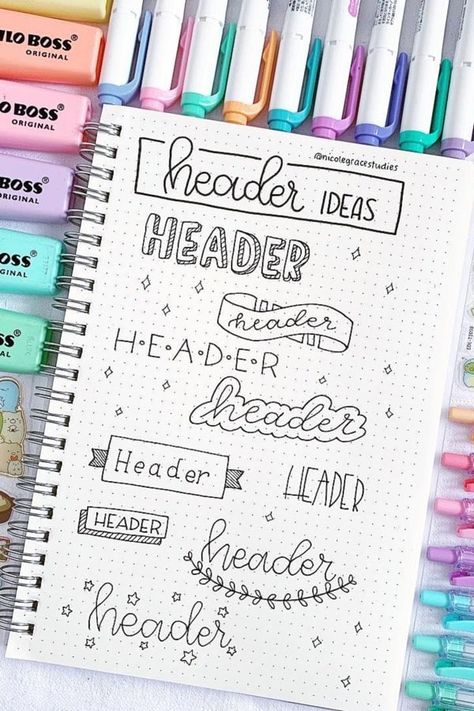 LO BOSS®
ORIGINAL
LO BOSS®
ORIGINAL
BOSS®
ORIGINAL
OSS®
INAL
OSS®
INAL
@nicolegracestudies
header IDEAS
HEADER
header
H·E·A·D·E·R
header
Header
HEADER
HEADER
header
header